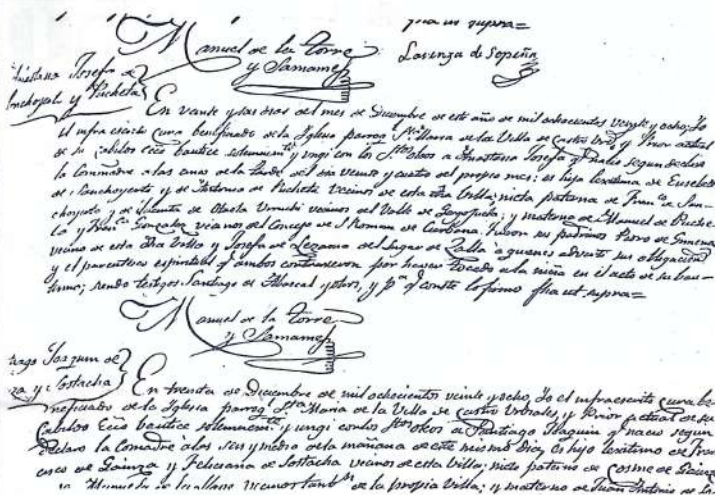 fha ut supra=
Manuel de la Torre
y Samames
Lorenza de Sopeña
Anastasia Josefa de
Sanchoyerto y Pucheta
En veinte y seis dias del mes de Diciembre de este año de mil ochocientos veinte y ocho; Yo
el infraescrito cura beneficiado de la Iglesia parroq.l Sta Maria de la Villa de Castro Urd.s y Prior actual
de su Cabildo Ecco bautice solemnemte y ungi con los Stos oleos a Anastasia Josefa q.e nacio segun declaro
la Comadre a las de la tarde del dia veinte y cuatro del propio mes: es hija lexitima de Eusebio
de Sanchoyerto y de Antonia de Pucheta vecinos de esta dha Villa; nieta paterna de Fran.co de San-
choyerto y de de Olaeta vecinos del Valle de; y materna de Manuel de Puche-
ta y Gonzalez vecinos del Concejo de S. Roman de; fueron sus padrinos Pedro de
vecino de esta dha Villa y Josefa de Lezama del lugar de Zalla a quienes adverti su obligacion
y el parentesco espiritual q.e ambos contraxeron por haver tocado a la niña en el acto de su bau-
tismo; siendo testigos Santiago de y otros, y p.a q.e conste lo firmo fha ut supra=
Manuel de la Torre
y Samames
Santiago Joaquin de
y Sostacha
En treinta de Diciembre de mil ochocientos veinte y ocho, Yo el infraescrito cura be-
neficiado de la Iglesia parroq.l Sta Maria de la Villa de Castro Urdiales, y Prior actual de su
Cabildo Ecco bautice solemnemte y ungi con los Stos oleos a Santiago Joaquin q.e nacio segun
declaro la Comadre a las seis y media de la mañana de este mismo dia, es hijo lexitimo de Fran-
cisco de Gainza y Feliciana de Sostacha vecinos de esta Villa; nieto paterno de Cosme de Gainza
de la propia Villa; y materno de Juan Antonio de